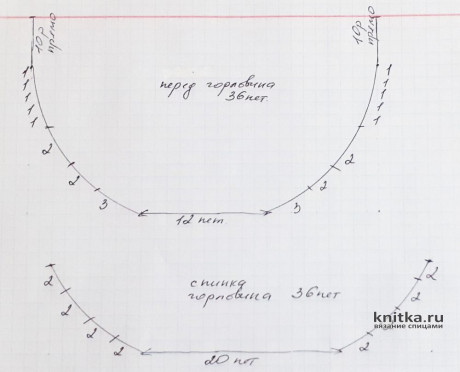 10р прямо
10р прямо
1
1
1
1
1
1
1
1
1
1
перед горловина
36пет.
2
2
3
2
2
3
12 пет
спинка
горловина 36пет
2
2
2
2
2
2
2
2
20 пет
knitka.ru
вязание спицами